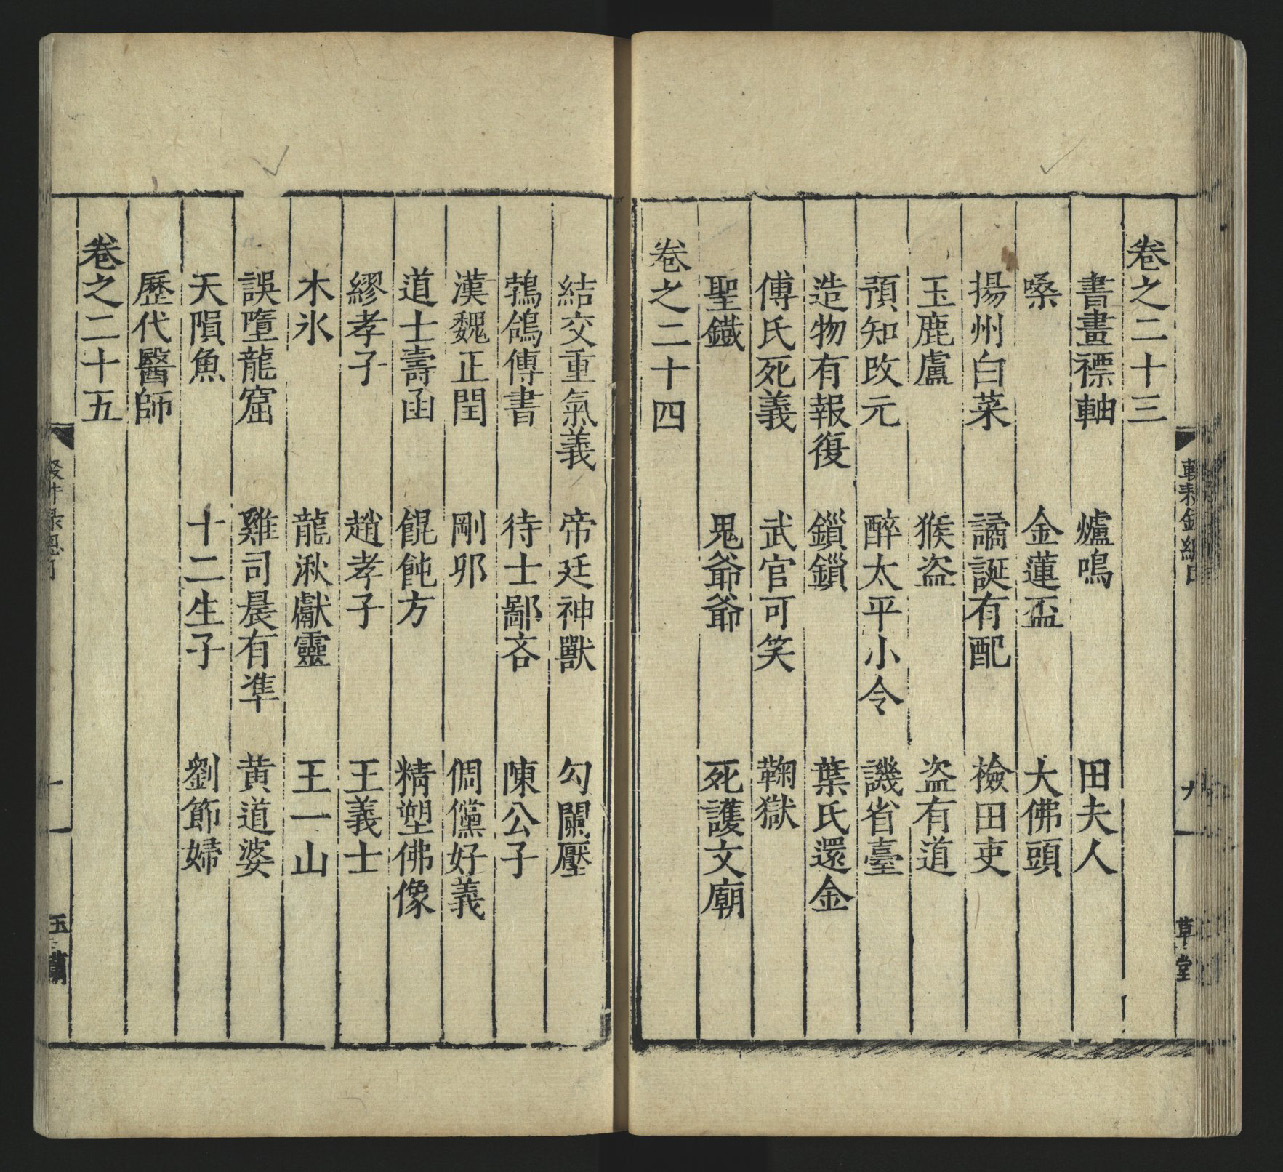 卷之二十三
書畫褾軸　爐鳴　田夫人
嗓　金蓮盃　大佛頭
揚州白菜　譎誕有配　檢田吏
玉鹿盧　猴盗　盗有道
預知改元　醉太平小令　譏省臺
造物有報復　鎖鎖　葉氏還金
傅氏死義　武官可笑　鞠獄
聖鐵　鬼爺爺　死護文廟
卷之二十四
結交重氣義　帝廷神獸　勾闌壓
鵓鴿傳書　待士鄙吝　陳公子
漢魏正閏　剛邜　倜儻好義
道士壽函　餛飩方　精塑佛像
繆孝子　趙孝子　王義士
木氷　龍湫獻靈　王一山
誤墮龍窟　雞司晨有凖　黃道婆
天隕魚　十二生子　劉節婦
歷代醫師
卷之二十五
草堂
九
玉蘭